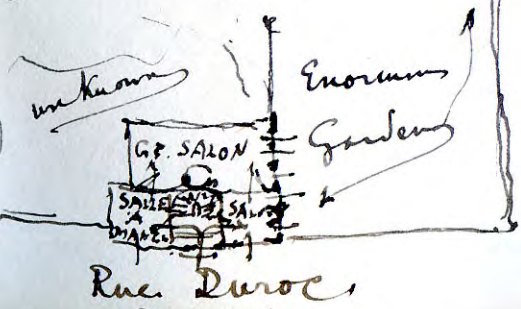 unknown
Enormous
Garden
Gd. SALON
SALLE
A
SALON
MANGER
Rue Duroc